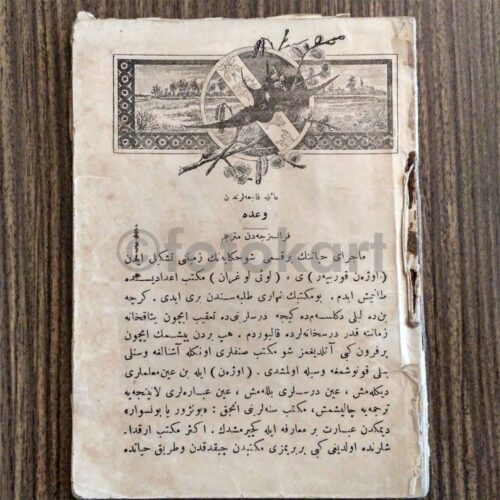 عائله فاجعه‌لرندن
وعده
فرانسزجه‌دن مترجم
ماجرای حیاتنك برقسمی شوحكایه‌نك زمینی تشكیل ایدن
(اوژن قوربیه‌ر) ی ، (لوئی لوغران) مكتب اعدادیسنده
طانیمش ایدم . بومكتبك نهاری طلبه‌سندن بری ایدی . كرچه
بن‌ده لیلی دكلسه‌م‌ده كیجه درسلرینی‌ده تعقیب ایچون یتاقخانه
زماننه قدر درسخانه‌لرده قالیوردم . هپ بردن پیشمك ایچون
برفرون كبی آتلدیغمز شو مكتب صنفلری اونكله آشنالغه وسنلی
بنلی قونوشمغه وسیله اولمشدی . (اوژن) ایله بن عین معلملری
دیكله‌مش ، عین درسلری بلله‌مش ، عین عباره‌لری لاتینجه‌یه
ترجمه‌یه چالیشمش ، مكتب سنه‌لرنی انجق : «بونژور یا بونسوار»
دیمكدن عبارت بر معارفه ایله كچیرمشدك . اكثر مكتب ارقدا-
شلرنده اولدیغی كبی بربریمزی مكتبدن چیقدقدن وطریق حیاتده
©fotokart